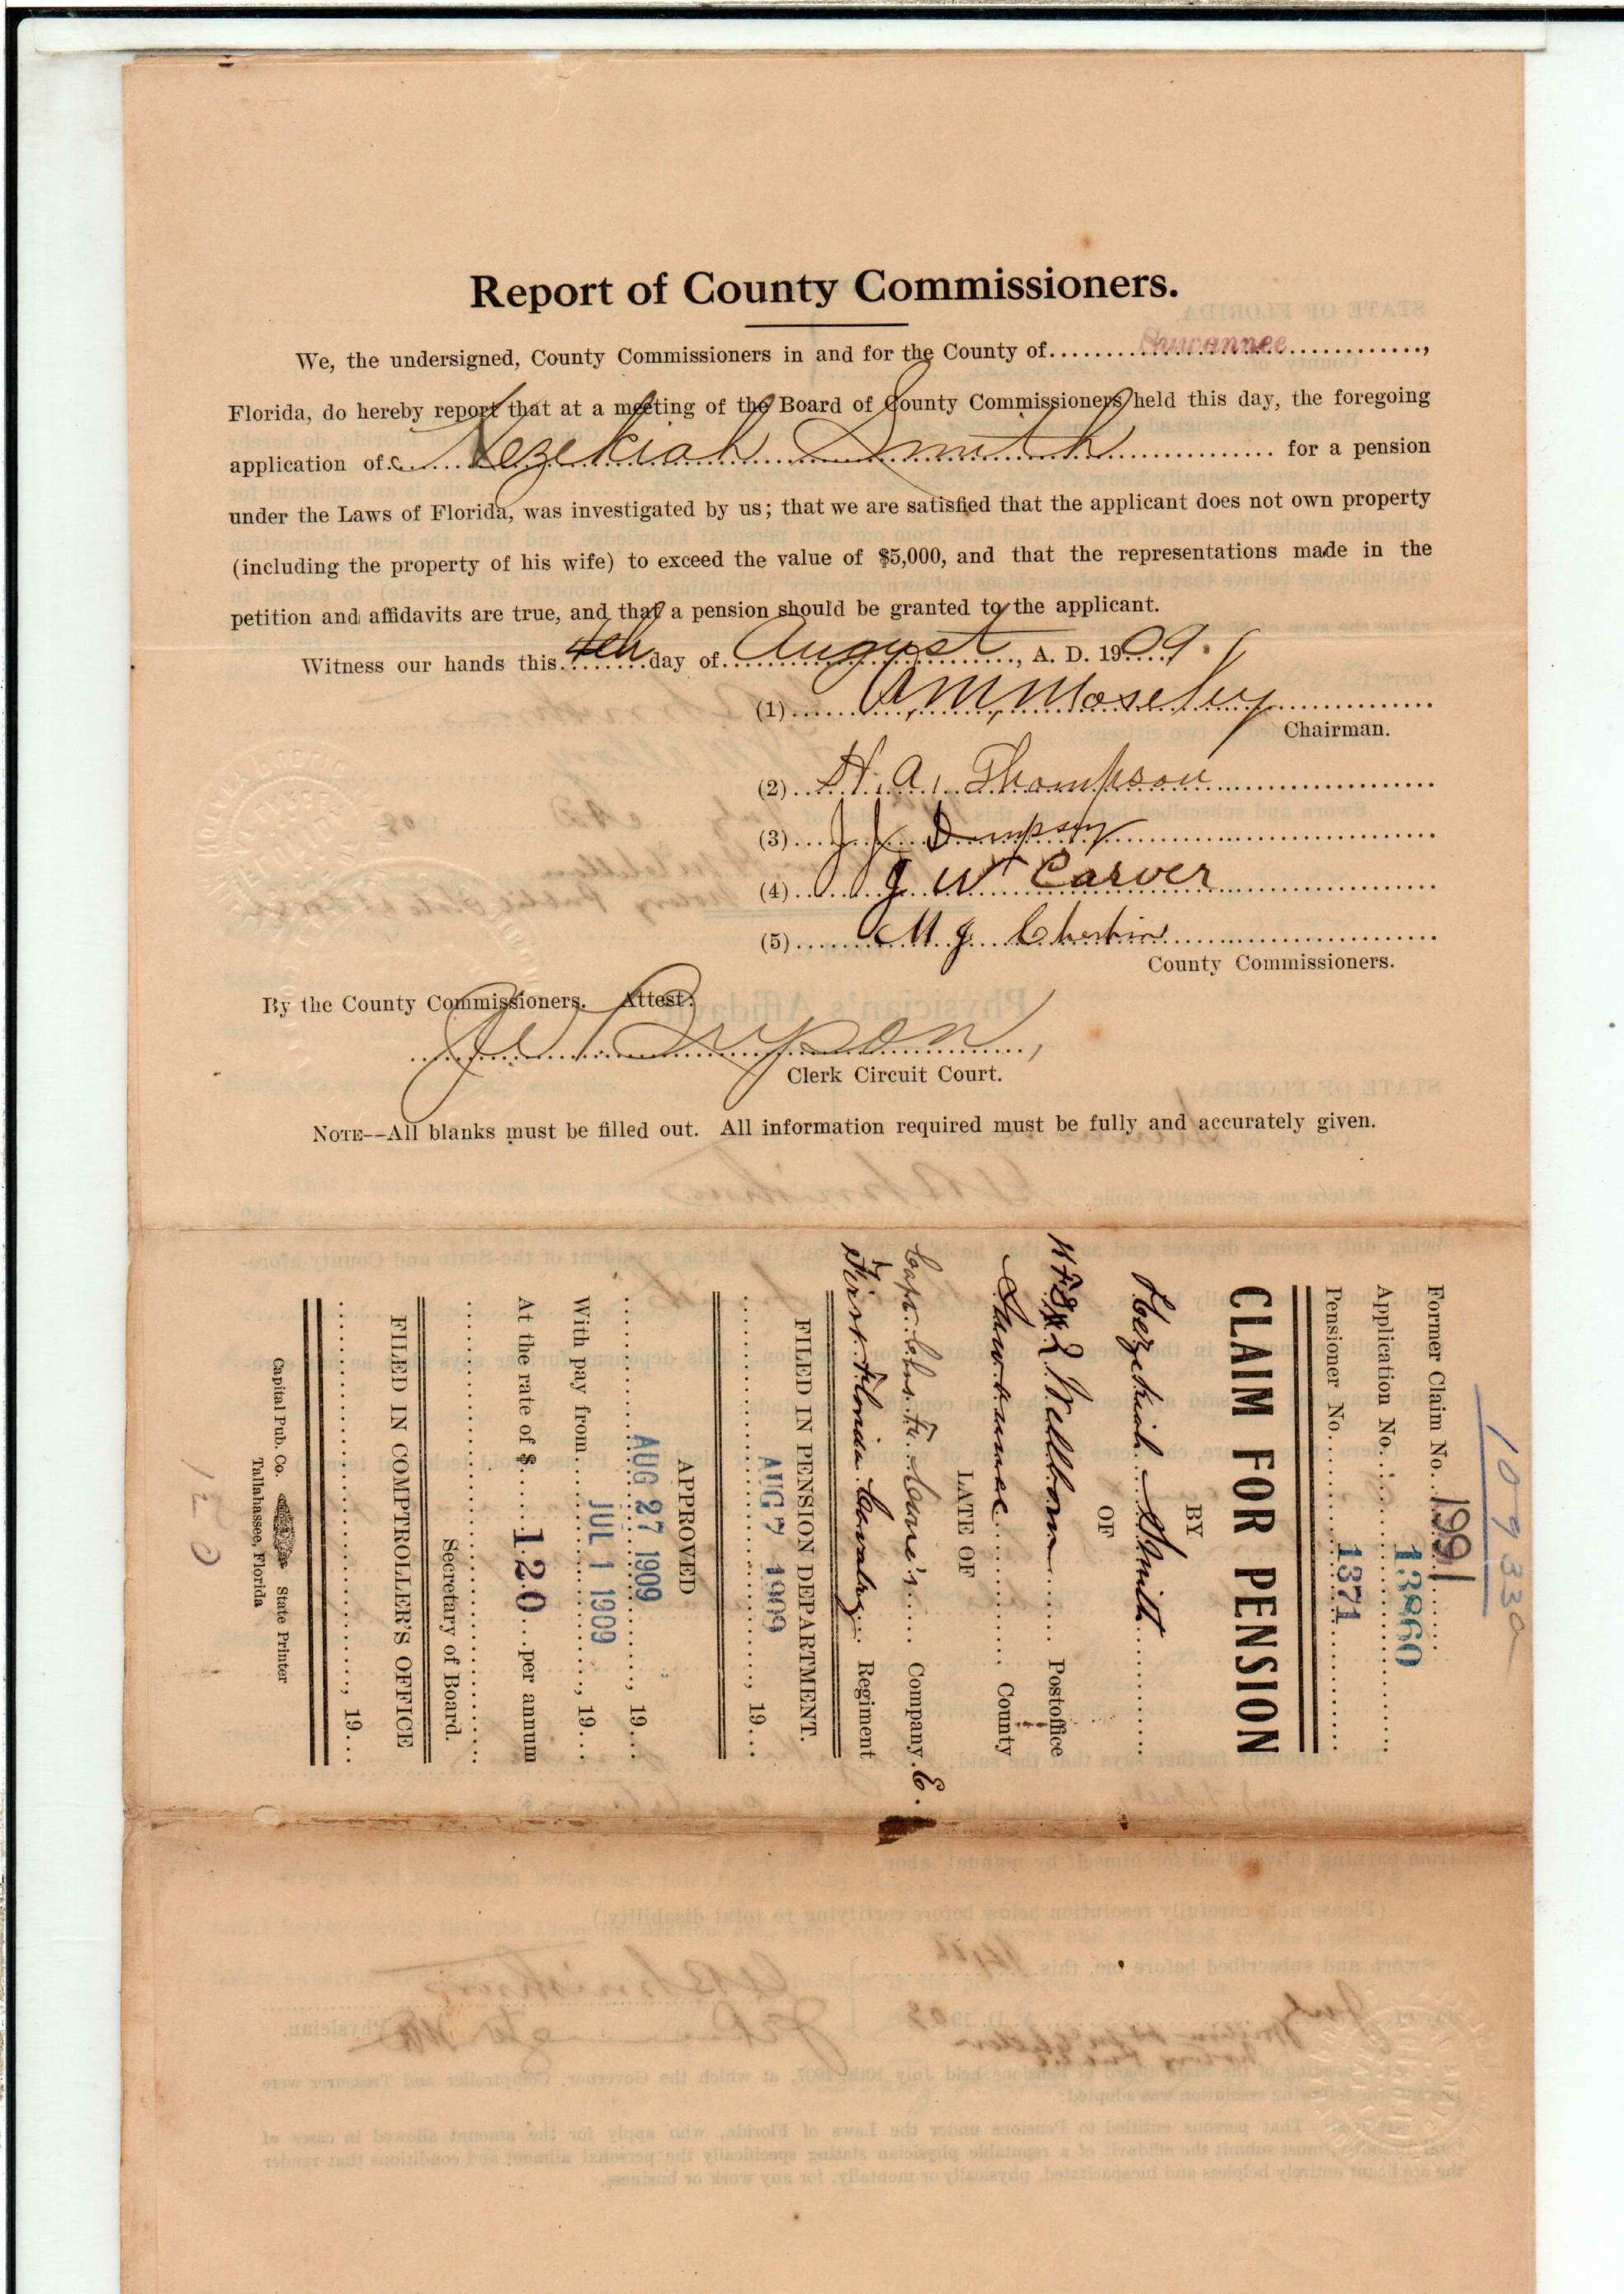 Report of County Commissioners.
We, the undersigned, County Commissioners in and for the County of Suwannee,
Florida, do hereby report that at a meeting of the Board of County Commissioners held this day, the foregoing
application of Hezekiah Smith for a pension
under the Laws of Florida, was investigated by us; that we are satisfied that the applicant does not own property
(including the property of his wife) to exceed the value of $5,000, and that the representations made in the
petition and affidavits are true, and that a pension should be granted to the applicant.
Witness our hands this 4th day of August, A. D. 1909.
(1) M Moseley
Chairman.
(2) H. A. Thompson
(3) J J Dempsey
(4) J W Carver
(5) M J
County Commissioners.
By the County Commissioners. Attest:
J W Bryson,
Clerk Circuit Court.
NOTE--All blanks must be filled out. All information required must be fully and accurately given.
109330
Former Claim No. 1991
Application No. 13860
Pensioner No. 1371
CLAIM FOR PENSION
BY
Hezekiah Smith
OF
2 Wellborn Postoffice
Suwannee County
LATE OF
Capt. Cone's Company E.
First Florida Cavalry Regiment
FILED IN PENSION DEPARTMENT.
AUG 7 1909, 19
APPROVED
AUG 27 1909, 19
With pay from JUL 1 1909, 19
At the rate of $ 120 per annum
Secretary of Board.
FILED IN COMPTROLLER'S OFFICE
, 19
Capital Pub. Co. State Printer
Tallahassee, Florida
120